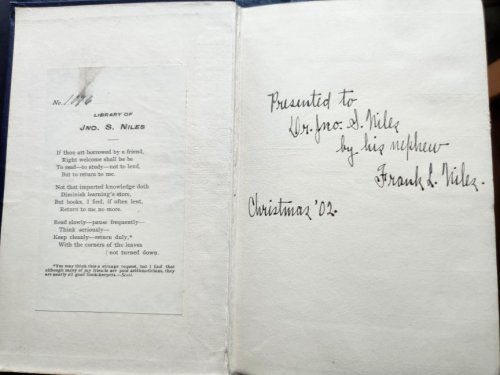 No. 1076
LIBRARY OF
JNO. S. NILES
If thou art borrowed by a friend,
Right welcome shall he be
To read—to study—not to lend,
But to return to me.
Not that imparted knowledge doth
Diminish learning's store,
But books, I find, if often lent,
Return to me no more.
Read slowly—pause frequently—
Think seriously—
Keep cleanly—return duly,*
With the corners of the leaves
not turned down.
*You may think this a strange request, but I find that
although many of my friends are poor arithmeticians, they
are nearly all good book-keepers.—Scott.
Presented to
Dr. Jno. S. Niles
by his nephew
Frank L. Niles.
Christmas '02.